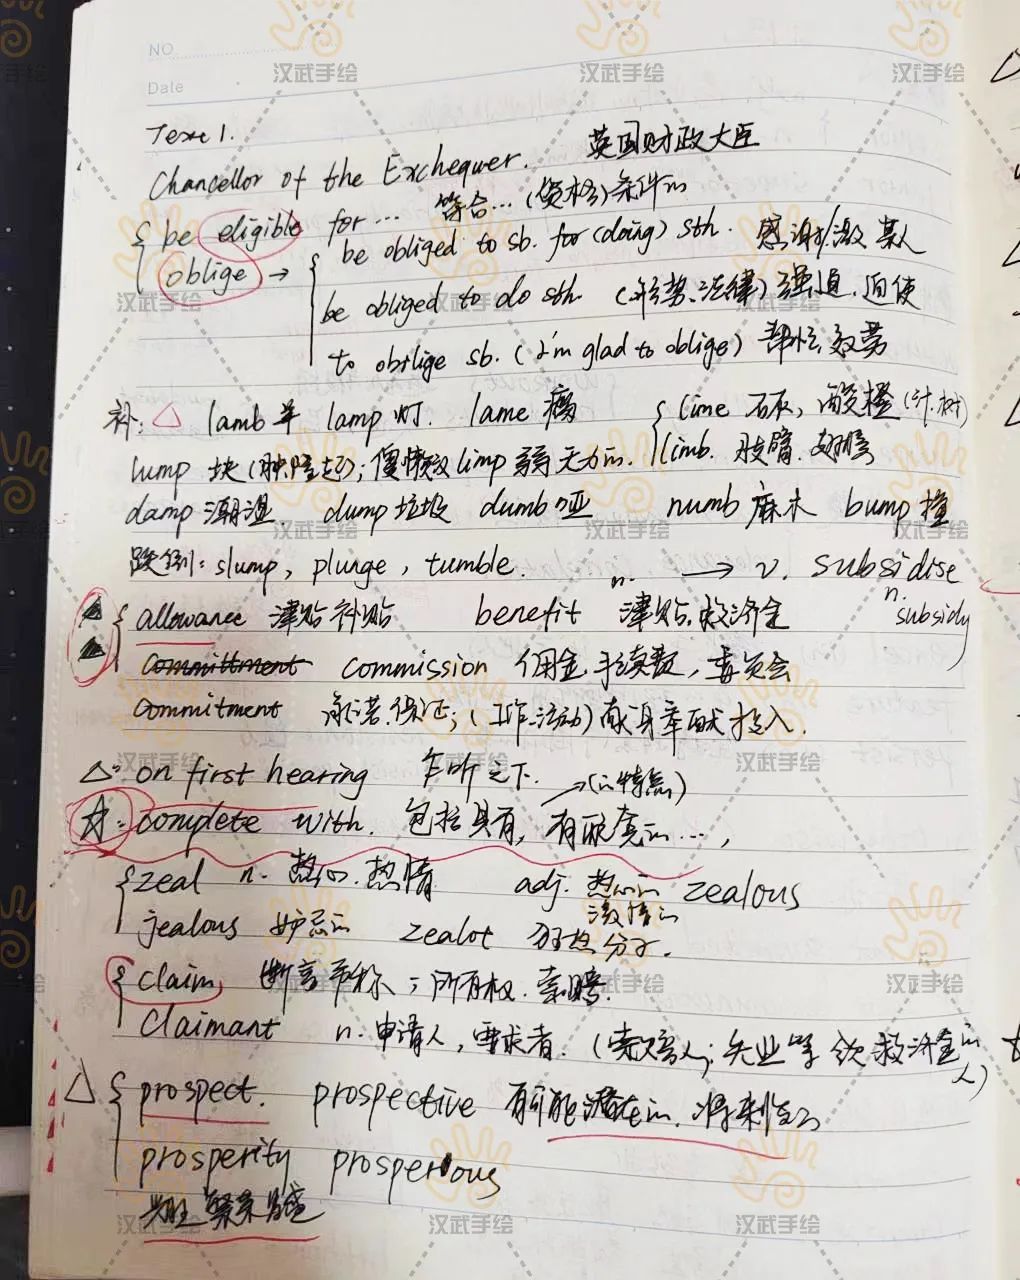 NO
Date
汉武手绘 汉武手绘 汉武手绘
Text 1.
Chancellor of the Exchequer. 英国财政大臣
be eligible for… 符合…(资格)条件的
oblige → be obliged to sb. for (doing) sth. 感谢/激某人
be obliged to do sth. (形势、法律)强迫,迫使
to oblige sb. (I'm glad to oblige) 帮忙,效劳
补: △ lamb 羊 lamp 灯. lame 瘸 lime 石灰, 酸橙(汁.树)
lump 块(肿隆起); 懒散 limp 弱无力的. limb. 肢臂. 翅膀
damp 潮湿 dump 垃圾 dumb 哑 numb 麻木 bump 撞
跌倒: slump, plunge, tumble. n. → v. subsidise
allowance 津贴补贴 benefit 津贴,救济金 n. subsidy
Committment commission 佣金,手续费, 委员会
commitment 承诺.保证; (工作.活动)献身奉献投入.
△: on first hearing 乍听之下. →(的特点)
☆: complete with. 包括具有, 有配套的…,
zeal n. 热心.热情 adj. 热心的 激情的 zealous
jealous 妒忌的 zealot 狂热分子.
claim 断言声称; 所有权. 索赔.
Claimant n. 申请人, 要求者. (索赔人; 失业等领救济金的人)
△ prospect. prospective 有可能潜在的. 将来的
prosperity prosperous
兴旺繁荣昌盛